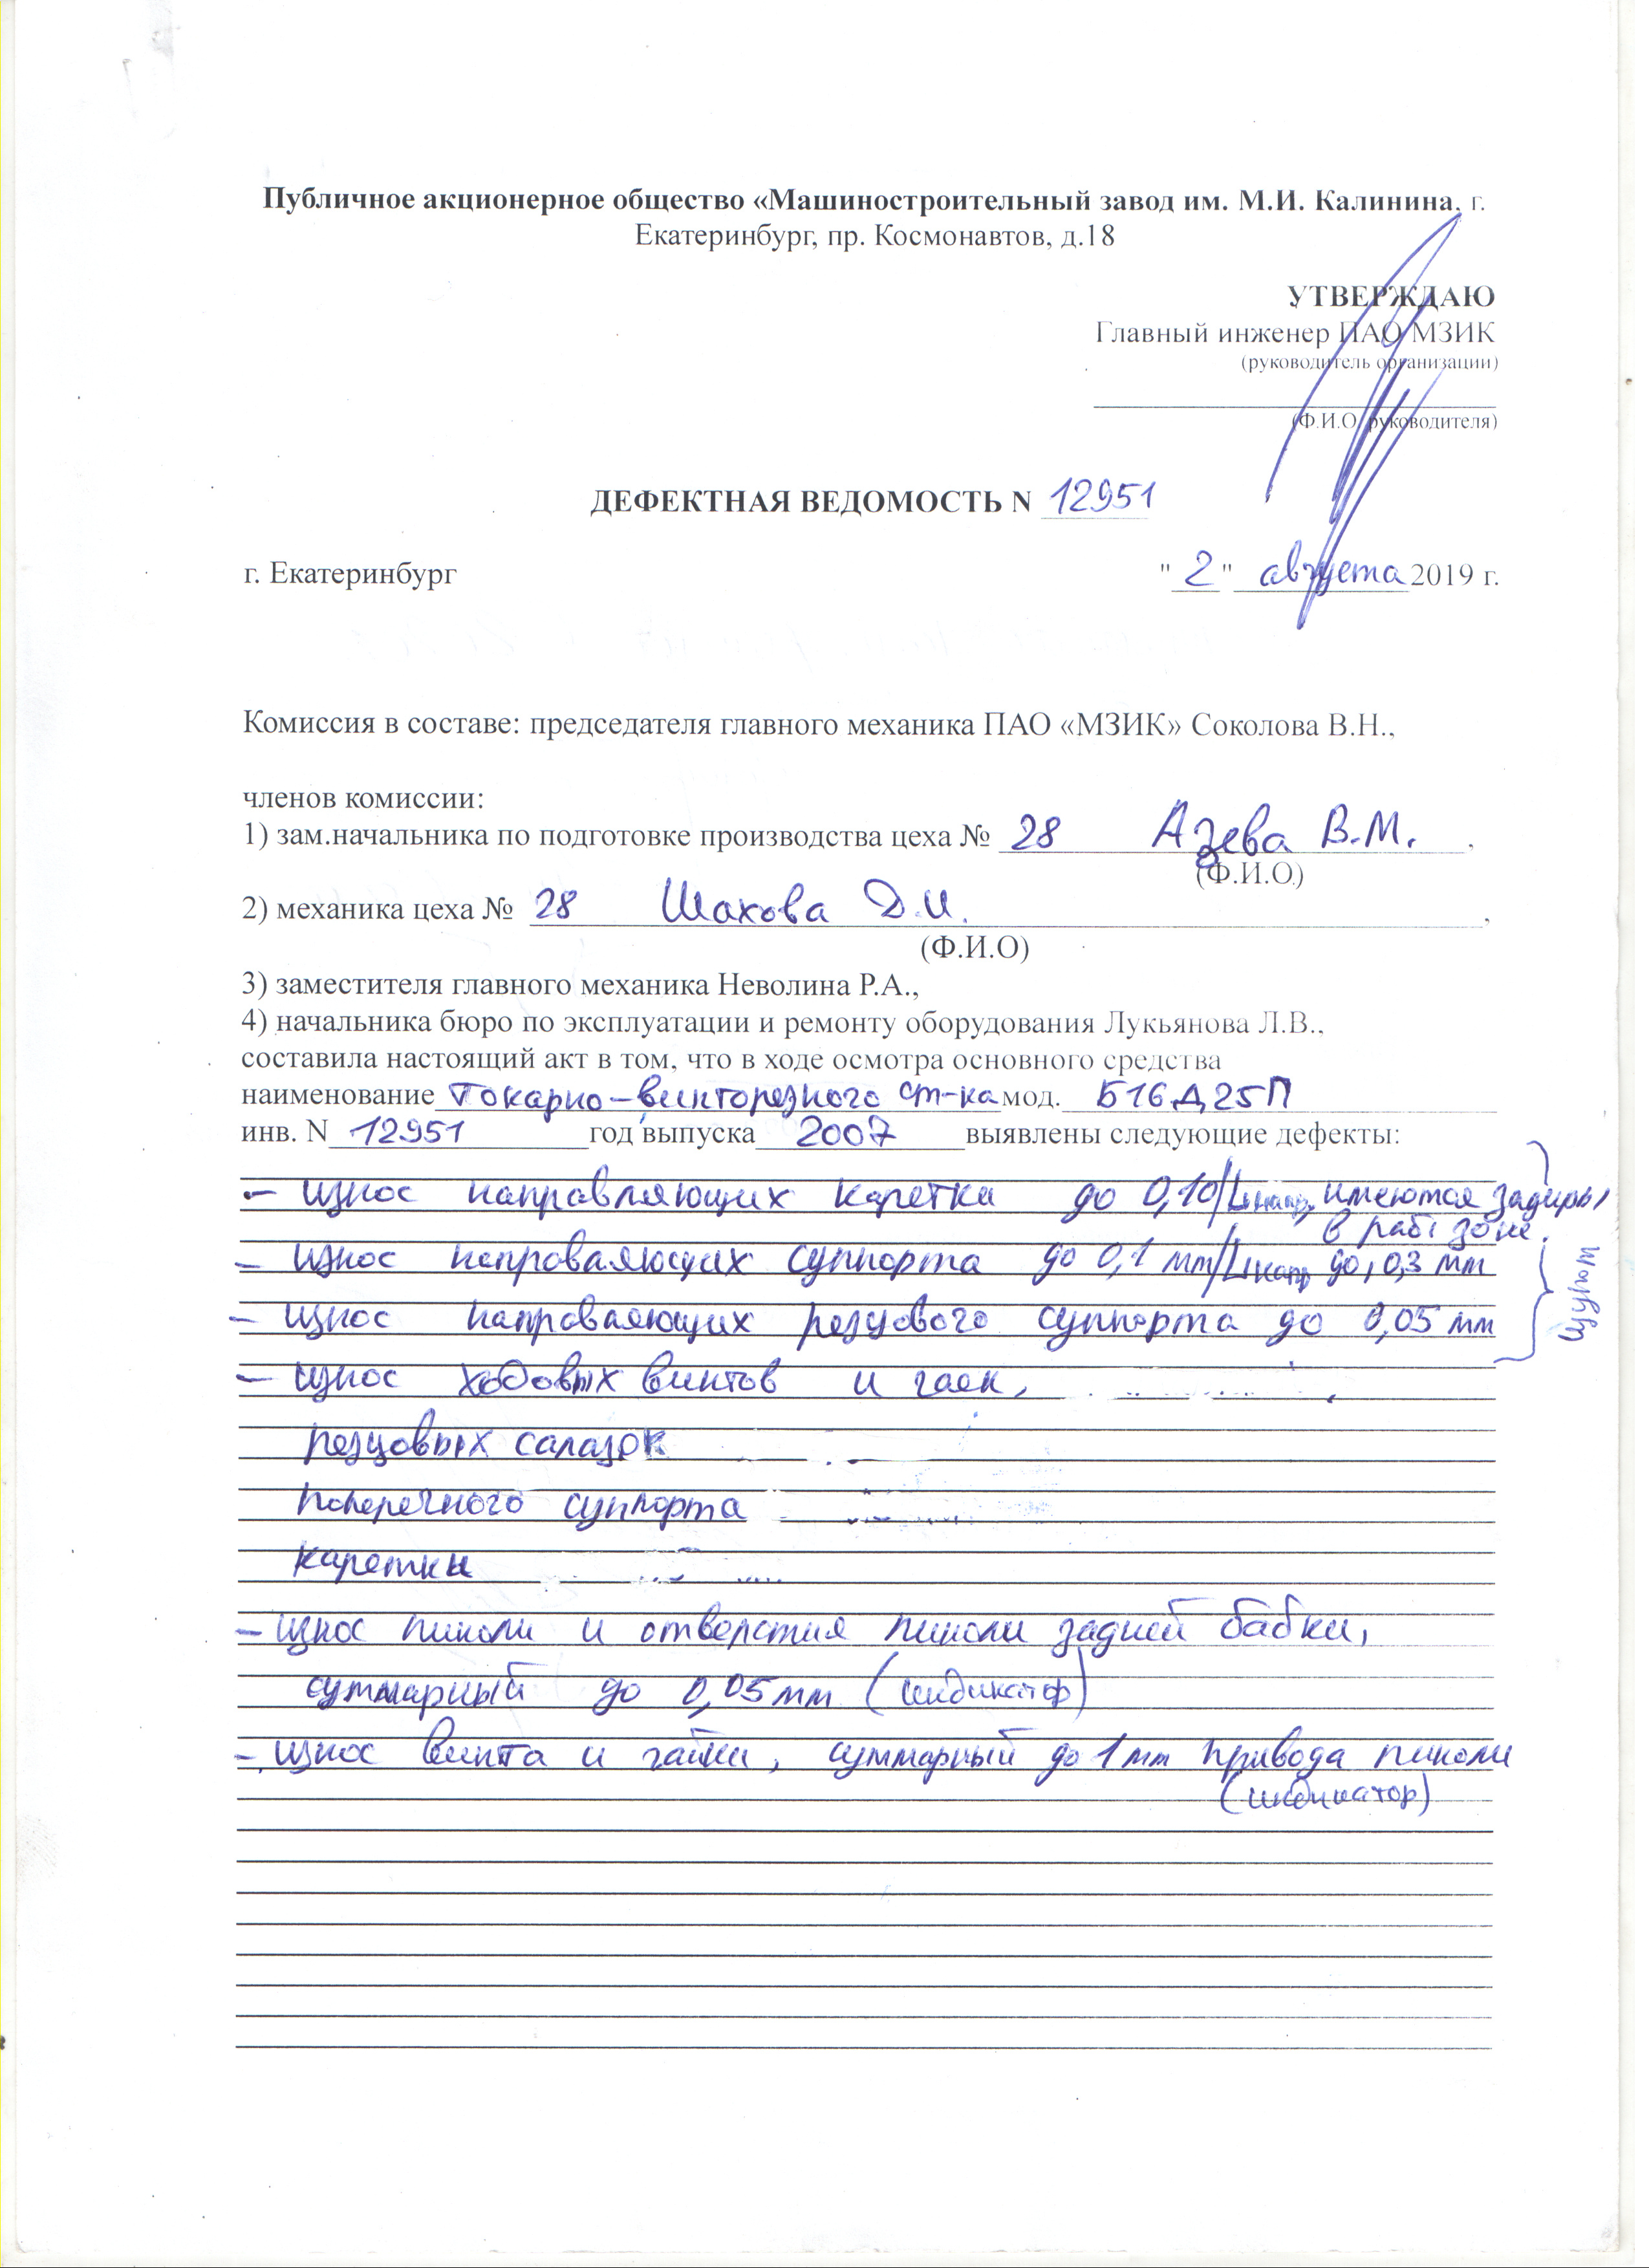 Публичное акционерное общество «Машиностроительный завод им. М.И. Калинина, г.
Екатеринбург, пр. Космонавтов, д.18
УТВЕРЖДАЮ
Главный инженер ПАО МЗИК
(руководитель организации)
(Ф.И.О. руководителя)
ДЕФЕКТНАЯ ВЕДОМОСТЬ N 12951
г. Екатеринбург " 2 " августа 2019 г.
Комиссия в составе: председателя главного механика ПАО «МЗИК» Соколова В.Н.,
членов комиссии:
1) зам.начальника по подготовке производства цеха № 28 Азева В.М.,
(Ф.И.О.)
2) механика цеха № 28 Шахова Д.И.,
(Ф.И.О)
3) заместителя главного механика Неволина Р.А.,
4) начальника бюро по эксплуатации и ремонту оборудования Лукьянова Л.В.,
составила настоящий акт в том, что в ходе осмотра основного средства
наименование Токарно-винторезного ст-ка мод. Б16Д25П
инв. N 12951 год выпуска 2007 выявлены следующие дефекты:
- износ направляющих каретки до 0,10/Lнапр, имеются задиры
в раб. зоне.
- износ направляющих суппорта до 0,1 мм/Lнапр до 0,3 мм
- износ направляющих резцового суппорта до 0,05 мм
щупом
- износ ходовых винтов и гаек,
резцовых салазок
поперечного суппорта
каретки
- износ пиноли и отверстия пиноли задней бабки,
суммарный до 0,05 мм (индикатор)
- износ винта и гайки, суммарный до 1 мм привода пиноли
(индикатор)